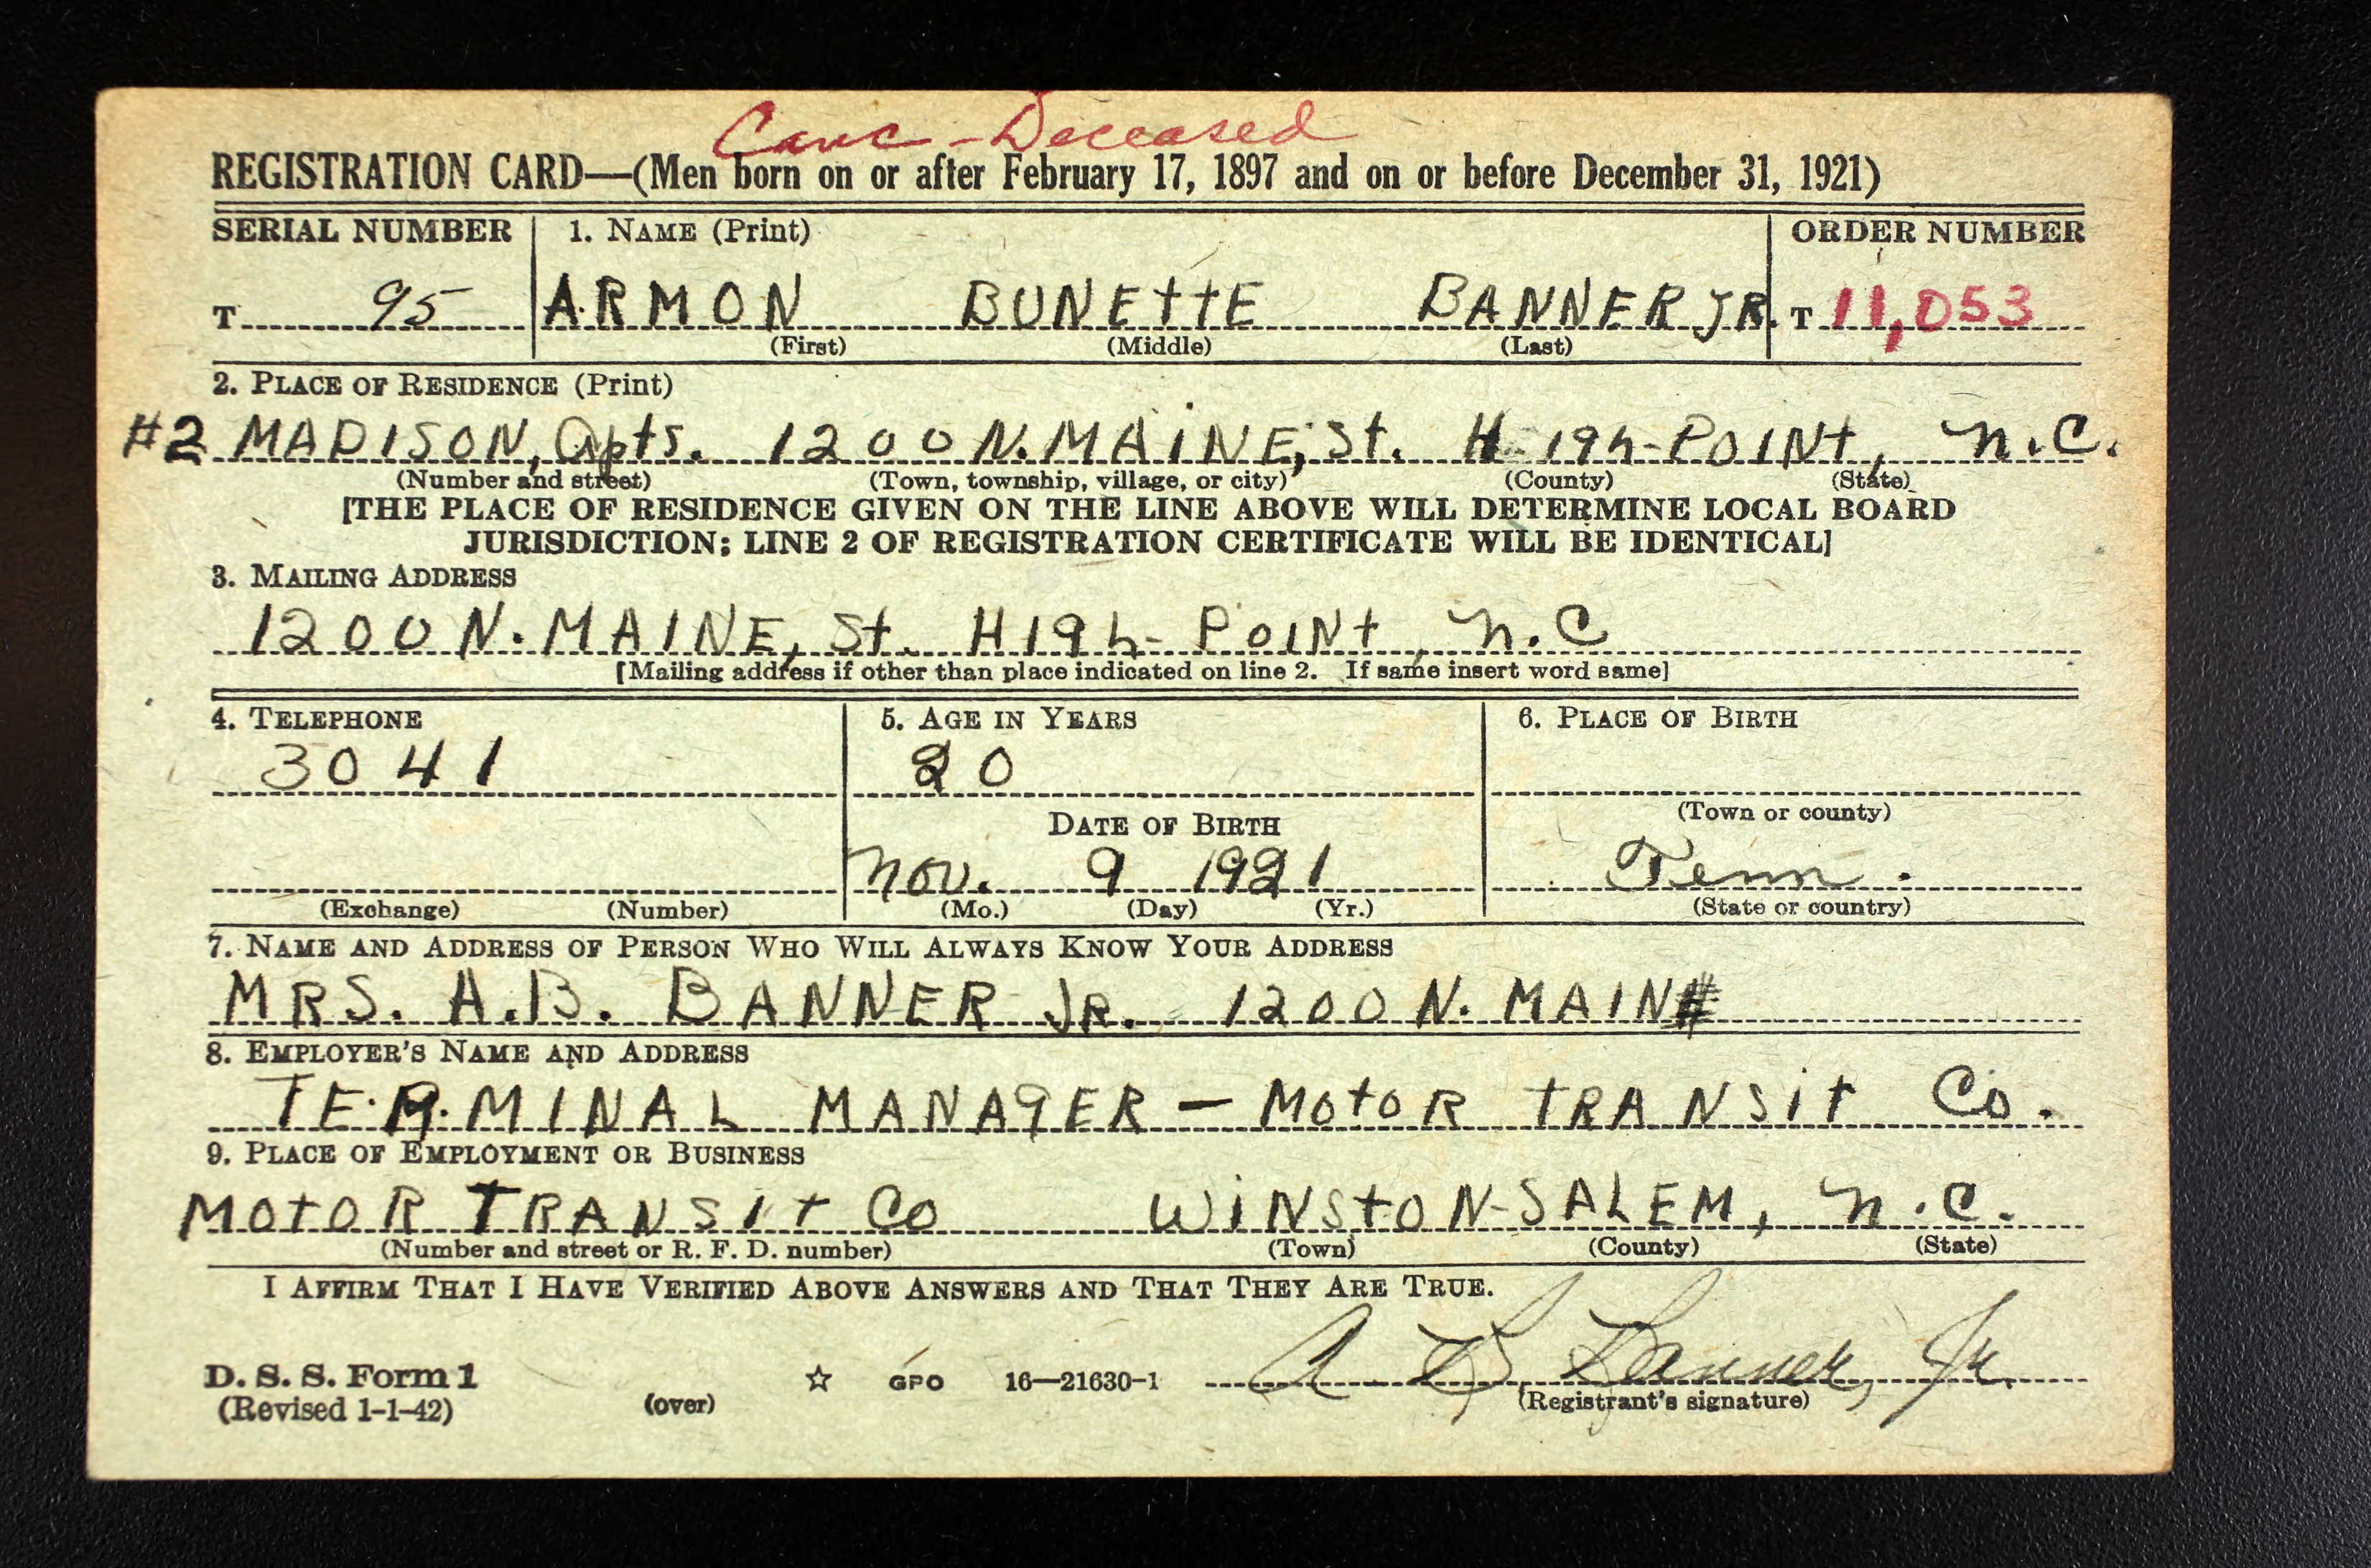 Canc - Deceased
REGISTRATION CARD—(Men born on or after February 17, 1897 and on or before December 31, 1921)
SERIAL NUMBER 1. NAME (Print) ORDER NUMBER
T 95 ARMON BUNEttE BANNER JR. T 11,053
(First) (Middle) (Last)
2. PLACE OF RESIDENCE (Print)
#2 MADISON, Apts. 1200 N. MAINE, St. High-POINt, N.C.
(Number and street) (Town, township, village, or city) (County) (State)
[THE PLACE OF RESIDENCE GIVEN ON THE LINE ABOVE WILL DETERMINE LOCAL BOARD
JURISDICTION; LINE 2 OF REGISTRATION CERTIFICATE WILL BE IDENTICAL]
3. MAILING ADDRESS
1200 N. MAINE, St. HIgh-POINt, N.C
[Mailing address if other than place indicated on line 2. If same insert word same]
4. TELEPHONE 5. AGE IN YEARS 6. PLACE OF BIRTH
3041 20
(Town or county)
DATE OF BIRTH
Nov. 9 1921 Tenn.
(Exchange) (Number) (Mo.) (Day) (Yr.) (State or country)
7. NAME AND ADDRESS OF PERSON WHO WILL ALWAYS KNOW YOUR ADDRESS
MRS. A.B. BANNER JR. 1200 N. MAIN
8. EMPLOYER'S NAME AND ADDRESS
TERMINAL MANAgER — MOtOR tRANSit Co.
9. PLACE OF EMPLOYMENT OR BUSINESS
MOtOR TRANSIt Co WINStON-SALEM, N.C.
(Number and street or R. F. D. number) (Town) (County) (State)
I AFFIRM THAT I HAVE VERIFIED ABOVE ANSWERS AND THAT THEY ARE TRUE.
A B Banner, Jr.
D. S. S. Form 1 ☆ GPO 16—21630-1
(Revised 1-1-42) (over) (Registrant's signature)